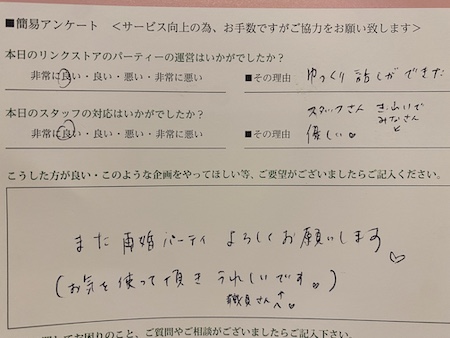 ■簡易アンケート ＜サービス向上の為、お手数ですがご協力をお願い致します＞
本日のリンクストアのパーティーの運営はいかがでしたか？
非常に良い・良い・悪い・非常に悪い ■その理由 ゆっくり話しができた
本日のスタッフの対応はいかがでしたか？
非常に良い・良い・悪い・非常に悪い ■その理由 スタッフさん きれいで みなさん と
優しい
こうした方が良い・このような企画をやってほしい等、ご要望がございましたらご記入ください。
また再婚パーティよろしくお願いします♡
(お気を使って頂きうれしいです。)
職員さんへ♡
お困りのこと、ご質問やご相談がございましたらご記入下さい。